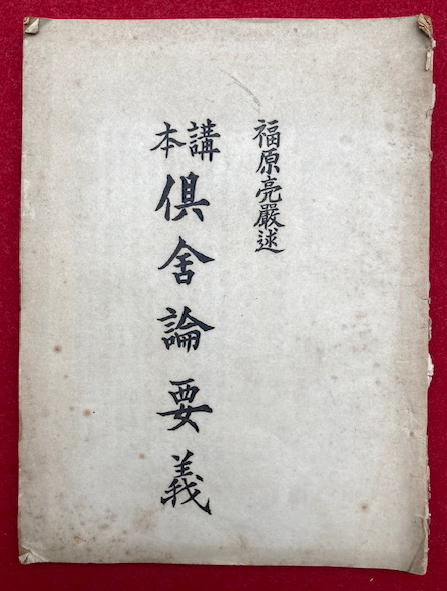 福原亮嚴述
講本 俱舍論要義